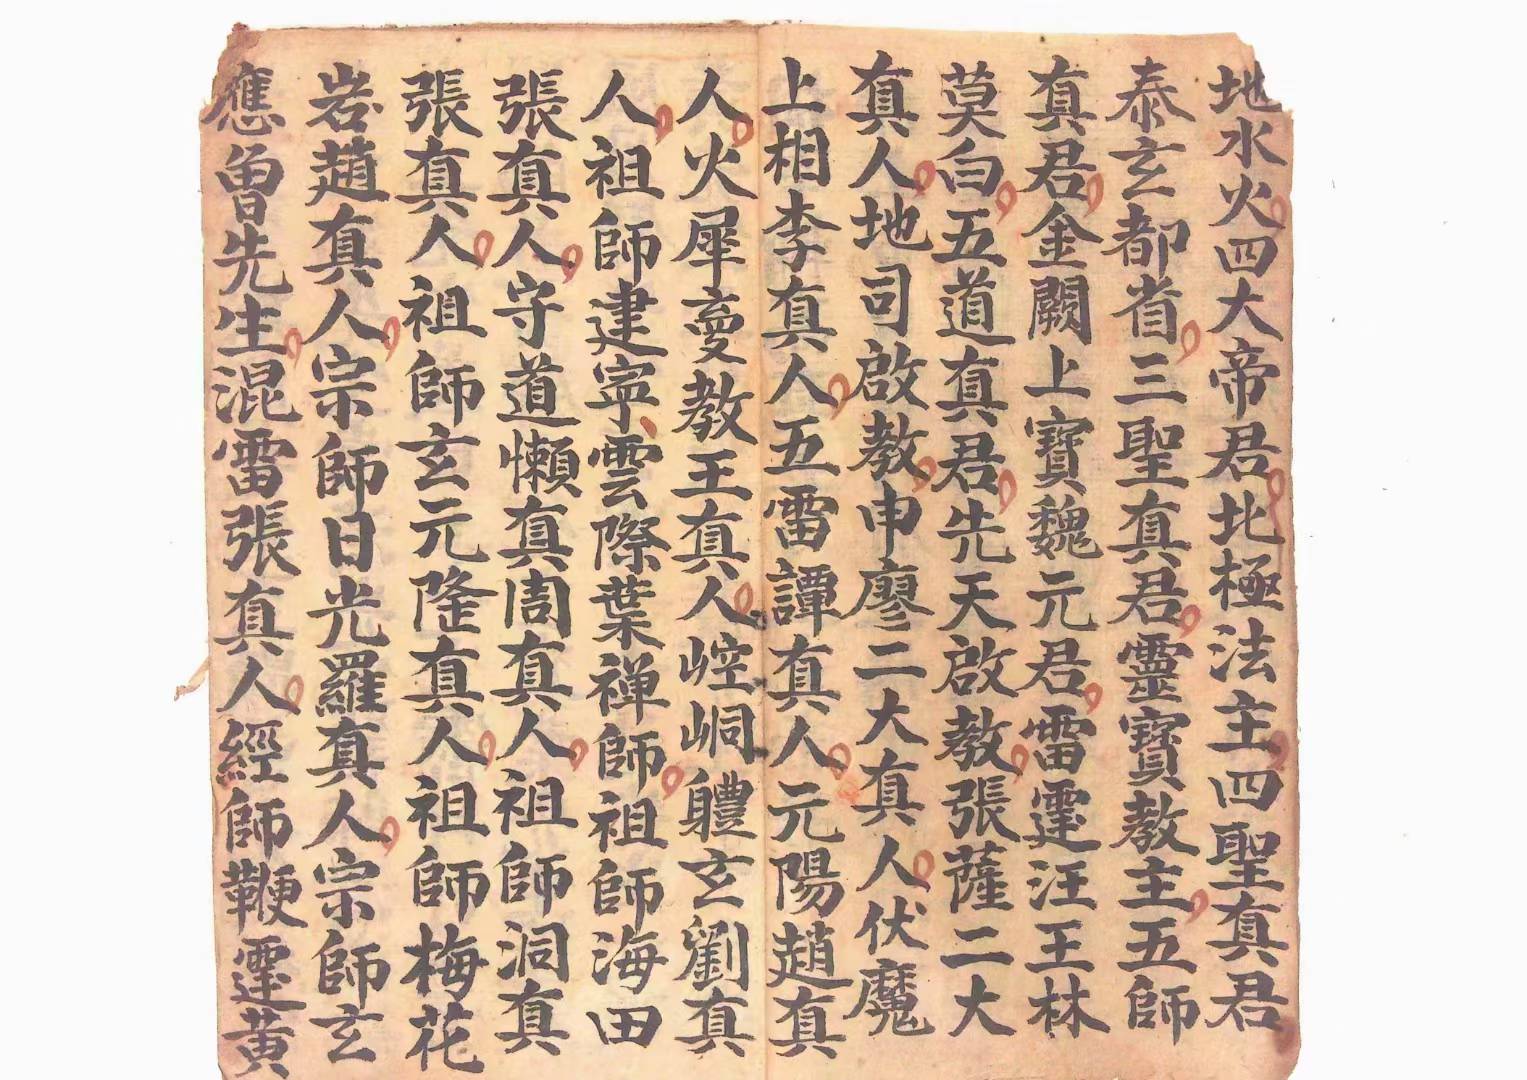 地水火四大帝君北極法主四聖真君
泰玄都省三聖真君靈寶教主五師
真君金闕上寶魏元君雷霆汪王林
莫白五道真君先天啟教張薩二大
真人地司啟教申廖二大真人伏魔
上相李真人五雷譚真人元陽趙真
人火犀變教王真人崆峒軆玄劉真
人祖師建寧雲際葉禅師祖師海田
張真人守道懶真周真人祖師洞真
張真人祖師玄元隆真人祖師梅花
岩趙真人宗師日光羅真人宗師玄
應曾先生混雷張真人經師鞭霆黄